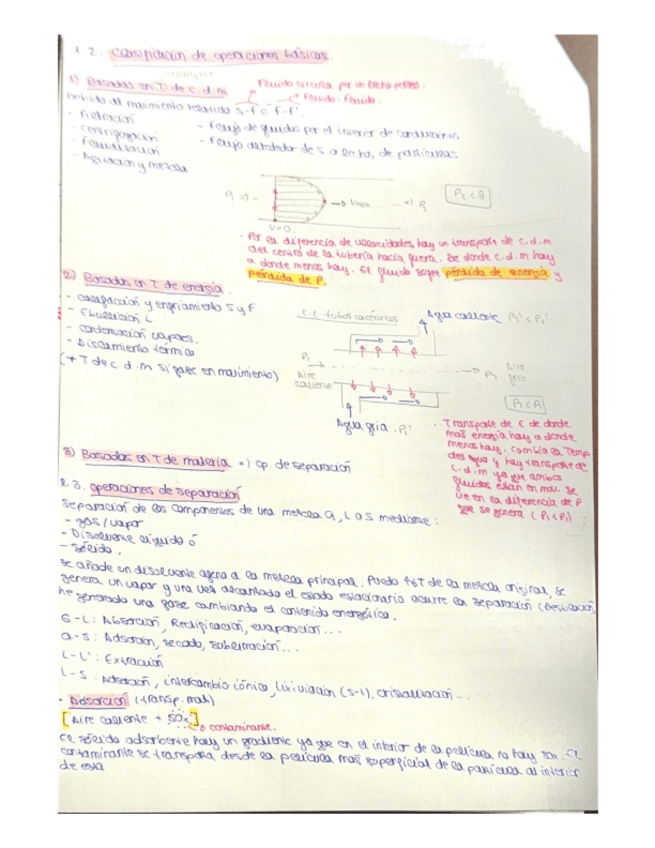 1.2. Clasificación de operaciones básicas.
1) Basadas en T de c.d.m
Fluido circula por un lecho poroso.
Fluido-Fluido.
Debido al movimiento relativo S-F o F-F'.
- Filtración
- Flujo de fluidos por el interior de conducciones
- Centrifugación
- Flujo alrededor de S o lechos de partículas
- Fluidización
- Agitación y mezcla
P1
P2 < P1
V=0
· Por la diferencia de velocidades hay un transporte de c.d.m
del centro de la tubería hacia fuera. De donde c.d.m hay
a donde menos hay. El fluido sufre pérdida de energía y
pérdida de P.
2) Basadas en T de energía
- Calefacción y enfriamiento S y F
- Ebullición L
- Condensación vapores.
- Aislamiento térmico
(+ T de c.d.m si fase en movimiento)
tubos concéntricos
Agua caliente P2' < P1'
P1
Aire
caliente
P2
Aire
frío
P2 < P1
Agua fría. P1'
· Transporte de E de donde
mas energía hay a donde
menos hay. Cambia la Temp
del agua y hay transporte de
c.d.m ya que ambos
fluidos están en mov. Se
ve en la diferencia de P
que se genera (P2<P1)
3) Basadas en T de materia => Op. de separación
1.3. Operaciones de separación
Separación de los componentes de una mezcla G, L o S mediante:
- gas/vapor
- Disolvente líquido ó
- Sólido.
Se añade un disolvente ajeno a la mezcla principal. Puedo T de la mezcla original, se
genera un vapor y una vez alcanzado el estado estacionario ocurre la separación (Destilación
he generado una fase cambiando el contenido energético.
G-L: Absorción, Rectificación, evaporación...
G-S: Adsorción, secado, sublimación...
L-L': Extracción
L-S: Adsorción, intercambio iónico, lixiviación (S-L), cristalización...
- Adsorción (transp. mat)
[Aire caliente + SOx]
contaminante.
El sólido adsorbente hay un gradiente ya que en el interior de la película no hay SOx. El
contaminante se transporta desde la película mas superficial de la partícula al interior
de esta